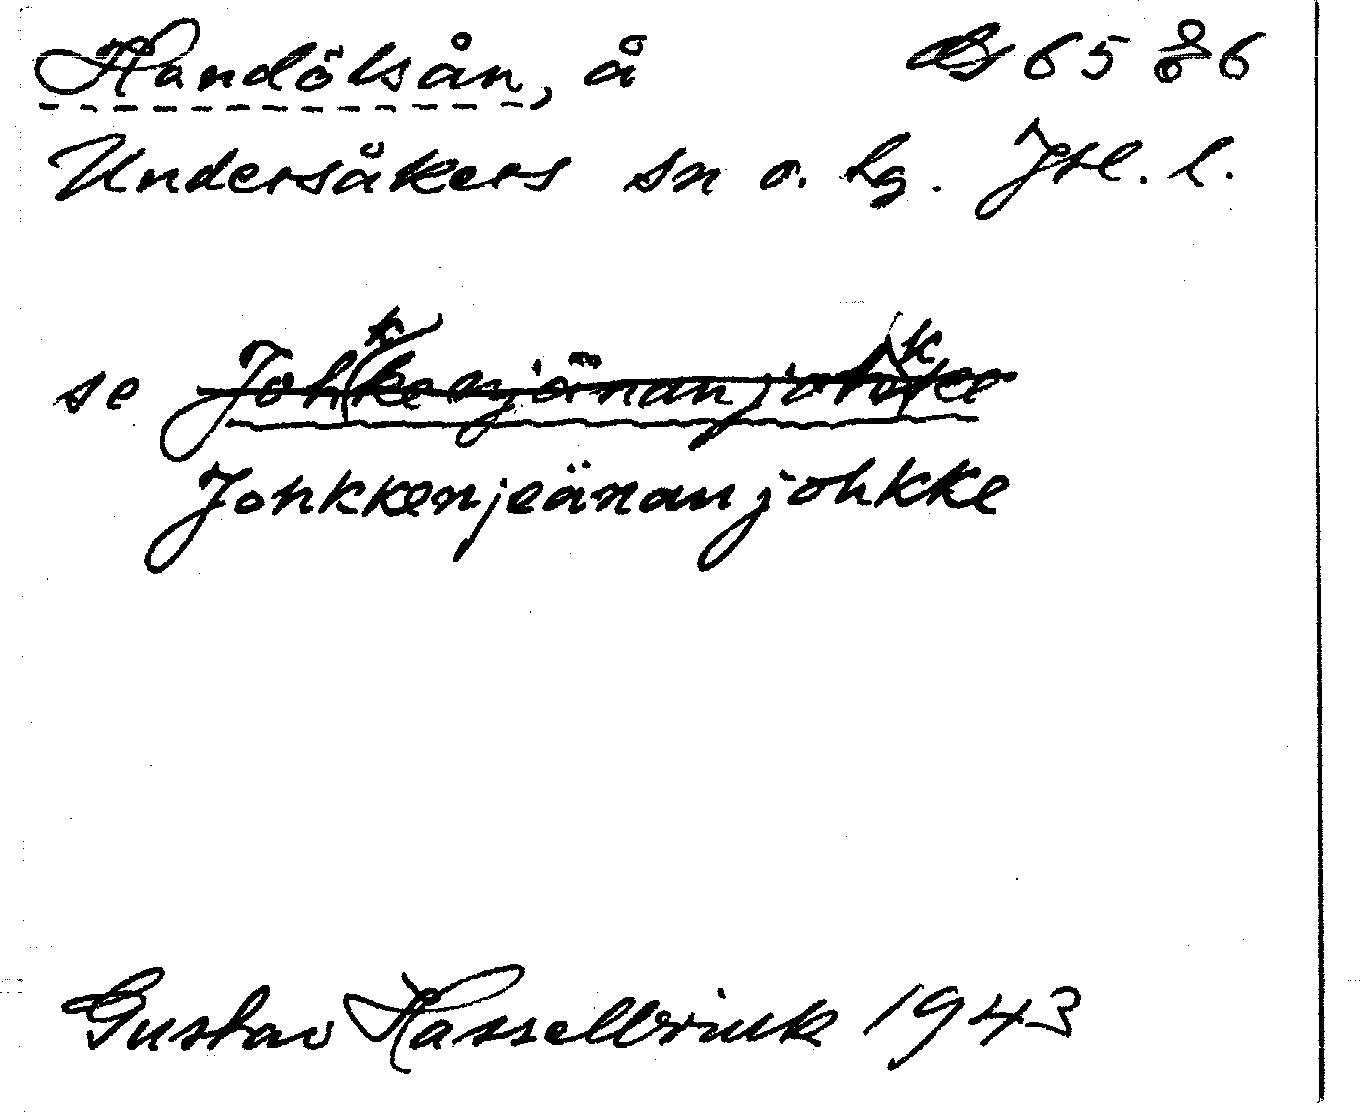 Handölsån, å 6586
Undersåkers sn o. hg. Jtl. l.
se
Johkkenjeänanjohkke
Gustav Hasselbrink 1943